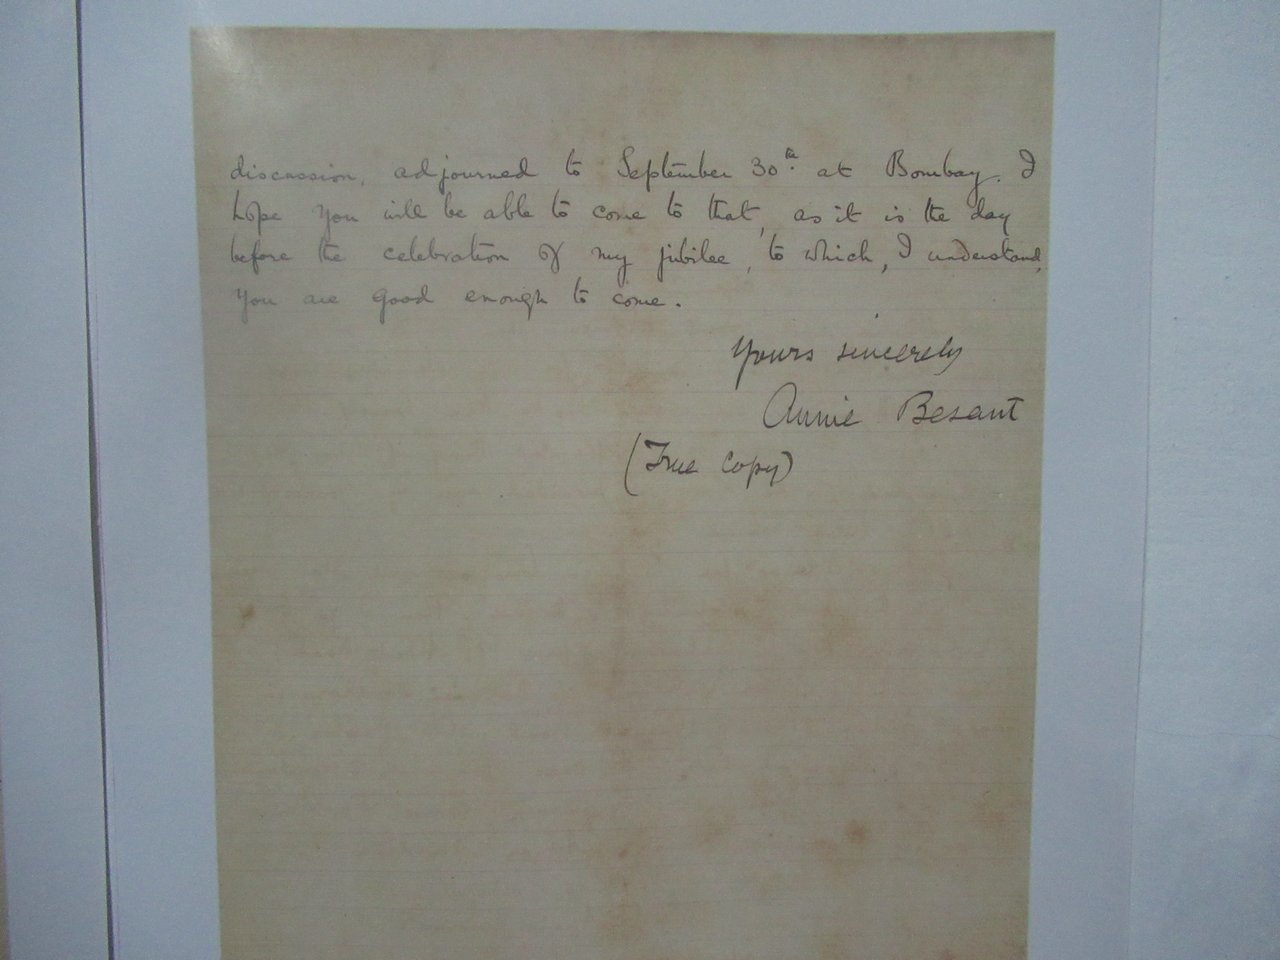 discussion, adjourned to September 30th. at Bombay. I
hope you will be able to come to that, as it is the day
before the celebration of my jubilee, to which, I understand,
you are good enough to come.
Yours sincerely
Annie Besant
(True Copy)